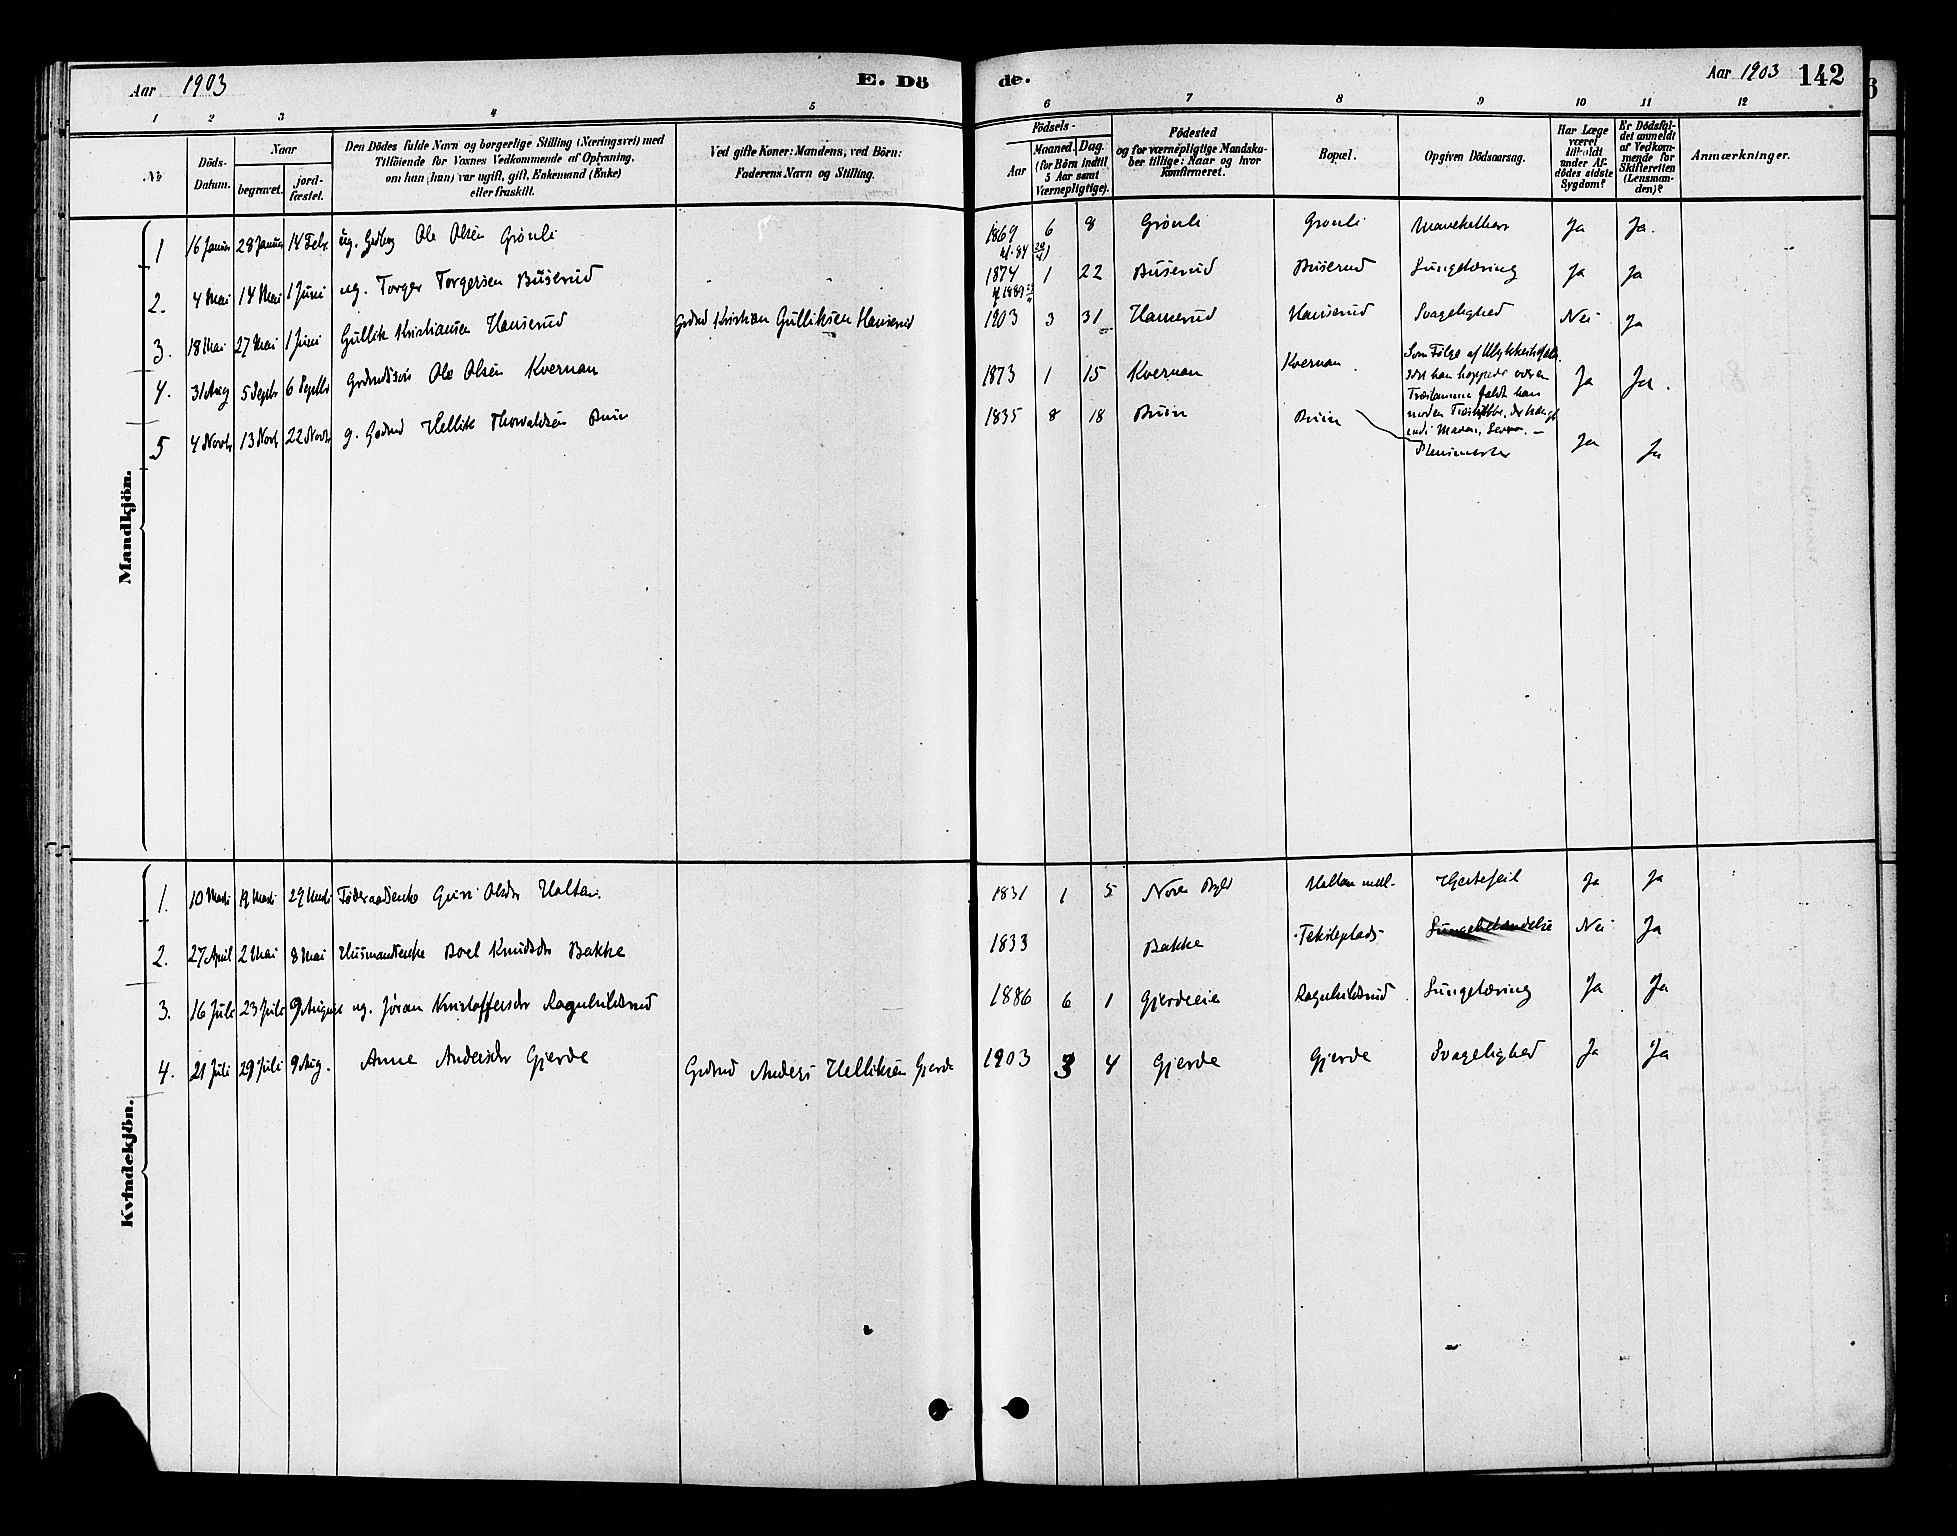 Aar 1903
E. Dö
de.
Aar 1903 142
6
1 2 3 4 5 6 7 8 9 10 11 12
No
Döds-
Datum.
Naar
begravet.
jord-
fæstet.
Den Dödes fulde Navn og borgerlige Stilling (Næringsvei) med
Tilföiende for Voxnes Vedkommende af Oplysning,
om han (hun) var ugift, gift, Enkemand (Enke)
eller fraskilt.
Ved gifte Koner: Mandens, ved Börn:
Faderens Navn og Stilling.
Födsels-
Aar
Maaned. Dag.
(for Börn indtil
5 Aar samt
Værnepligtige).
Födested
og for værnepligtige Mandska-
ber tillige: Naar og hvor
konfirmeret.
Bopæl.
Opgiven Dödsaarsag.
Har Læge
været
tilkaldt
under Af-
dödes sidste
Sygdom?
Er Dödsfal-
det anmeldt
af Vedkom-
mende for
Skifteretten
(Lensman-
den)?
Anmærkninger.
Mandkjön.
1 16 Januar 28 Januar 14 Febr. ug. Ole Olsen Grönli 1869 6 8 Grönli Grønli Ja Ja.
2. 4 Mai 14 Mai 1 Juni ug. Torger Torgersen Buserud 1874 1 22 Buserud Buserud Lungetæring Ja Ja
3. 18 Mai 27 Mai 1 Juni Gullik Kristiansen Hanserud Grdmd Kristian Gulliksen Hanserud 1903 3 31 Hanserud Hanserud Svagelighed Nei Ja
4. 31 Aug 5 Septb 6 Septb Ole Olsen Kvernan 1873 1 15 Kvernan Kvernan Som Følge af
han hoppede over en
faldt han
Ja Ja.
5 4 Novb 13 Novb 22 Novb g. Grdmd Hellik Thorvaldsen Bruin 1835 8 18 Bruin Bruin Ja Ja
Kvindekjön.
1. 10 Marts 19 Marts 29 Marts Føderaadsenke Guri Olsdr Halten. 1831 1 5 Nore Halten Hjertefeil Ja Ja
2. 27 April 2 Mai 8 Mai Husmandsenke Boel Knudsdr Bakke 1833 Bakke Nei Ja
3. 16 Juli 23 Juli 9 August ug. Jöran Kristoffersdr Ragnhildsrud 1886 6 1 Gjerdeeie Ragnhildsrud Lungetæring Ja Ja
4. 21 Juli 29 Juli 9 Aug. Anne Andersdr Gjerde Grdmd Anders Helliksen Gjerde 1903 3 4 Gjerde Gjerde Svagelighed Ja Ja